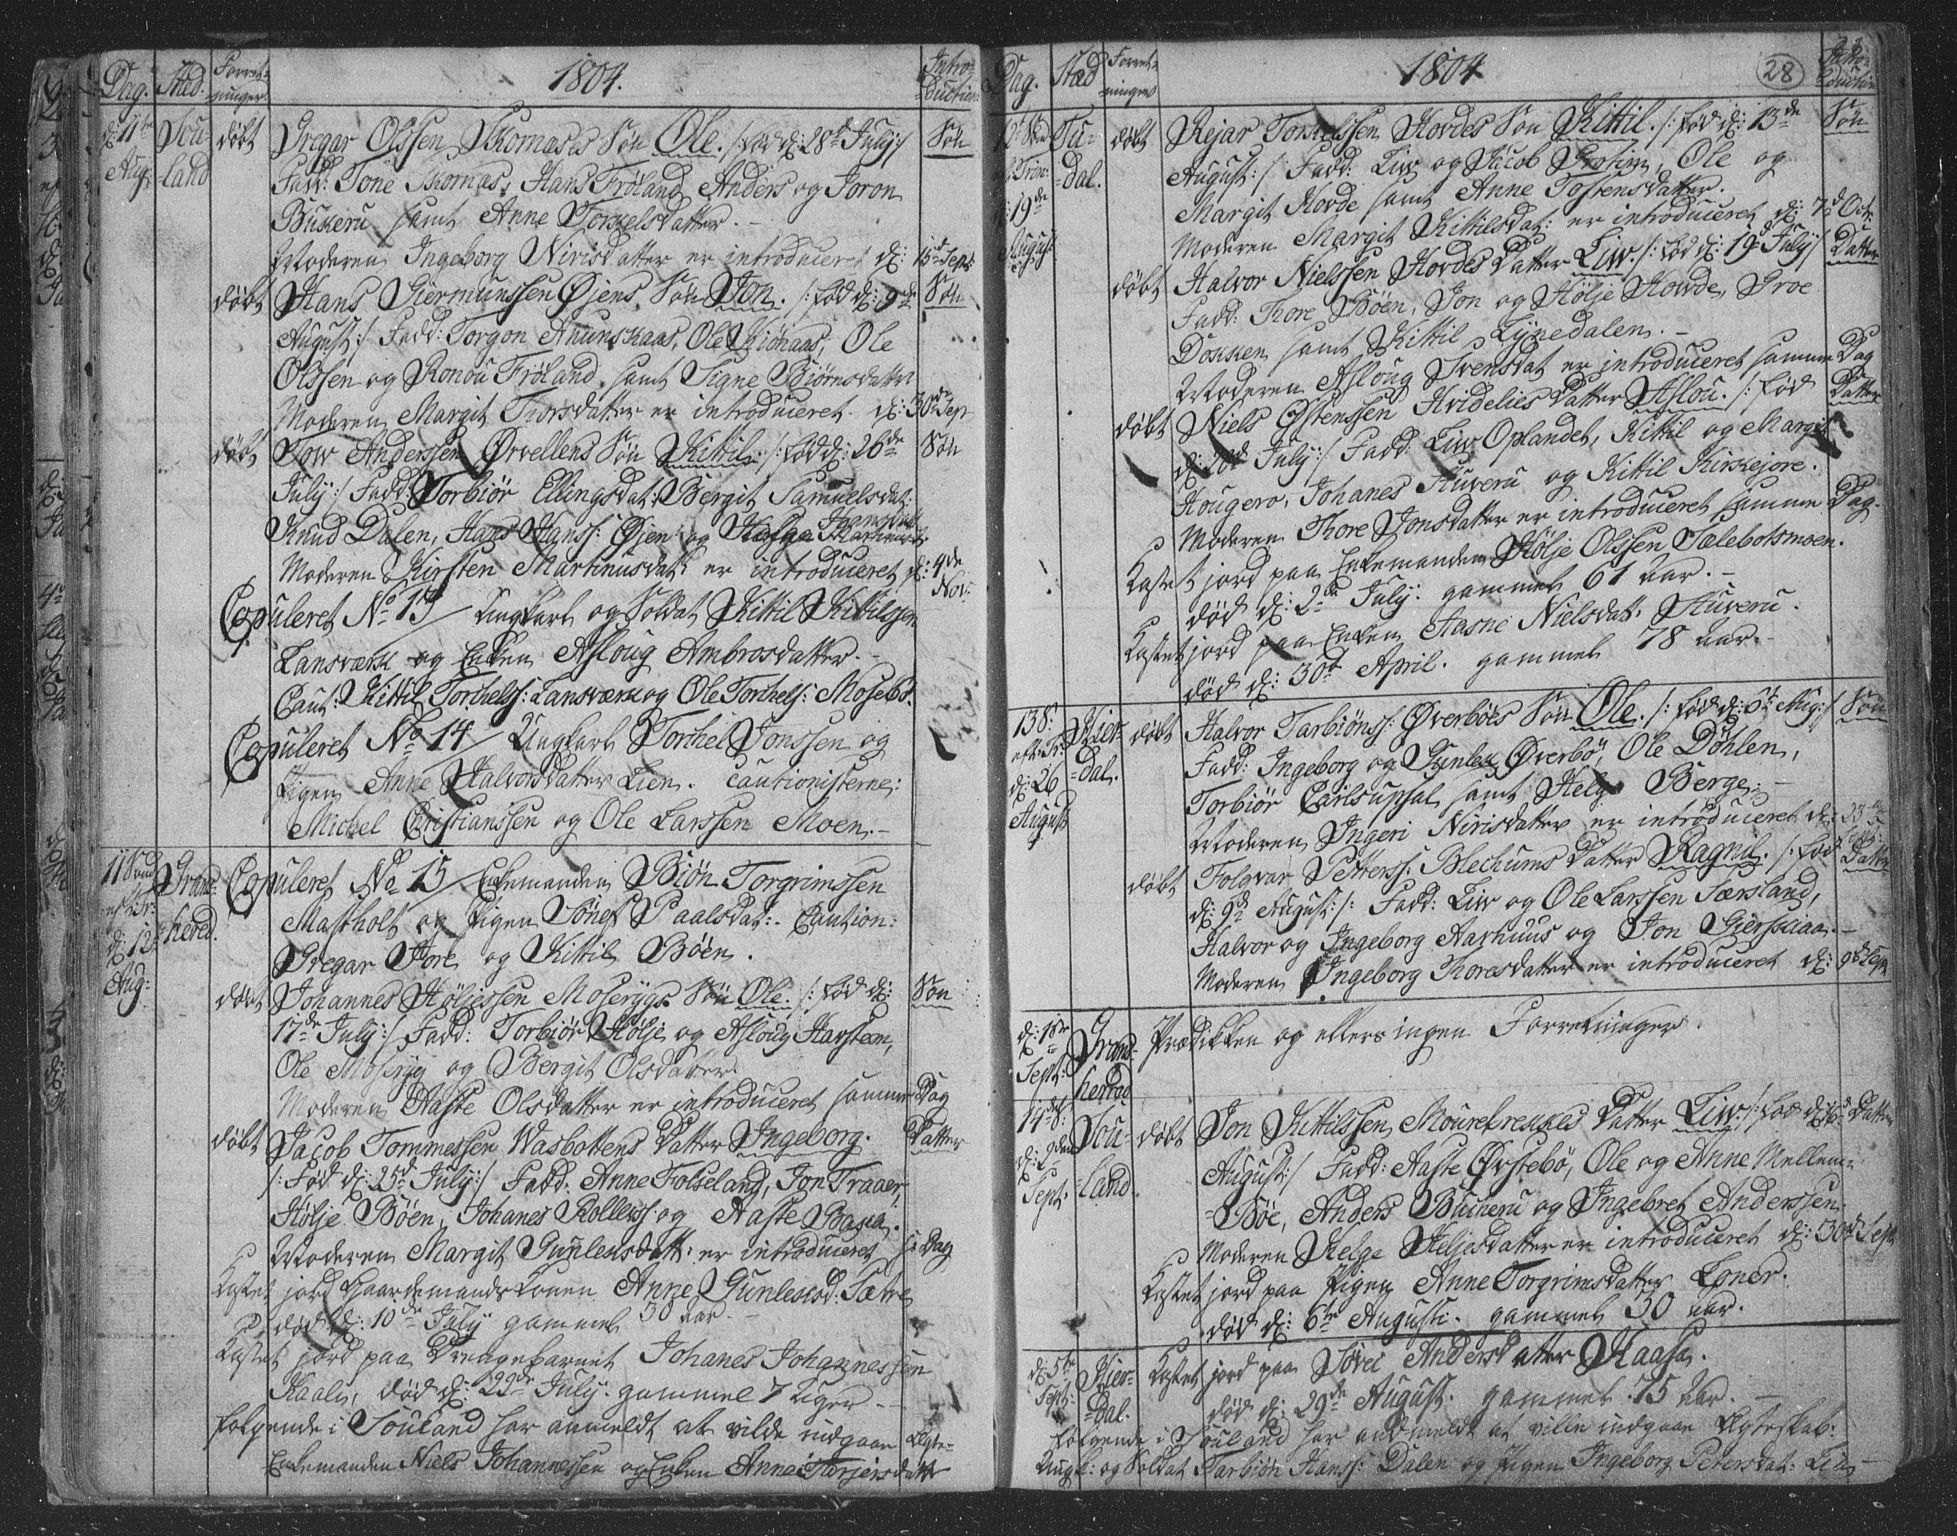 Dag. Sted. Forret-
ninger. 1804. Intro-
duction
d: 11te Sou- døbt Gregar Olssen Skornases Søn Ole. /: fød d: 28de July :/ Søn
Aug: land Fadd: Tone Skornas, Hans Frøland, Anders og Joron
Buskeru samt Anne Torkelsdatter. -
Moderen Ingeborg Nirisdatter er introduceret d: 15de Sept:
døbt Hans Giermunssen Øjens Søn Jon. /: fød d: 9de Søn
August :/ Fadd: Torgon Anunskaas, Ole Kiønaas, Ole
Olssen og Ronou Frøland, samt Signe Biørnsdatter
Moderen Margit Torsdatter er introduceret. d: 30te Sept
døbt Tow Anderssen Ørvellens Søn Kittil. /: fød d: 26de Søn
July :/ Fadd: Torbiør Ellingsdat: Bergit Samuelsdat:
Knud Dalen, Hans Hanss: Øjen og Helge
Moderen Kirsten Martinusdat: er introduceret d: 4de Nov:
Copuleret No 13 / Ungkarl og Soldat Kittil Kittilssen
Lansværk og Enken Asloug Ambrosdatter. -
Caut: Kittil Torchelss: Lansværk og Ole Torchels: Mosebø.
Copuleret No 14 / Ungkarl Torchel Jonssen og
Pigen Anne Halvorsdatter Lien. cautionisterne:
Michel Christianssen og Ole Larssen Moen. -
11 Sønd: Grans- Copuleret No 15 / Enkemanden Biøn Torgrimssen
eft: Tr: herred. Mastholt og Pigen Sønef Paalsdat:. Caution:
d: 12te Gregar Fore og Kittil Böen.
Aug: døbt Johannes Höljessen Moserygs Søn Ole. /: fød d: Søn
17de July :/ Fadd: Torbiør Hölje og Asloug Harsteen,
Ole Moseryg og Bergit Olsdatter.
Moderen Aaste Olsdatter er introduceret samme Dag
døbt Jacob Tommessen Wasbottens Datter Ingeborg. Datter
/: Fød d: 25de July :/ Fadd: Anne Folseland, Jon Traaer,
Hölje Böen, Johanes Rollerss: og Aaste Bakka.
Moderen Margit Gunleksdatt: er introduceret s: Dag
Kastet jord Gaardemandskonen Anne Gunleksd: Sætre
død d: 10de July gammel 30 aar. -
Kastet jord paa Drengebarnet Johanes Johannessen
Kaali, død d: 22de July. gammel 7 Uger. -
følgende i Souland har anmeldt at vilde indgaae Ægte-
Enkemanden Niels Johannessen og Enken Anne Herjersdatter
Dag. Sted Forret-
ninger 1804 28 Intro-
duction
12te Sønd: Tu- døbt Rejar Torkelssen Hovdes Søn Kittil. /: fød d: 13de Søn
eft: Trin: dal. August :/ Fadd: Liv og Jacob Grotim, Ole og
d: 19de Margit Hovde samt Anne Tostensdatter.
August Moderen Margit Kittilsdat: er introduceret d: 7de Oct:
døbt Halvor Nielssen Hovdes Datter Liw. /: fød d: 19de July :/ Datter
Fadd: Thore Böen, Jon og Hölje Hovde, Groe
Dokken samt Kittil Lynedalen. -
Moderen Asloug Svensdat er introduceret samme Dag
døbt Niels Ostenssen Hvidelies Datter Aslou. /: fød Datter
d: 20de July :/ Fadd: Liw Oplandet, Kittil og Margit
Hougero, Johanes Huveru og Kittil Kirkejore.
Moderen Thore Jonsdatter er introduceret samme Dag.
Kastet jord paa Enkemanden Hölje Olssen Tælebotsmoen.
død d: 2de July. gammel 61 aar. -
Kastet jord paa Enken Aasne Nielsdat: Huveru.
død d: 30te April. gammel 78 Aar. -
13S: Hier- døbt Halvor Tarbiönss: Øverböes Søn Ole. /: fød d: 6te Aug: / Søn
eft: Tr: dal. Fadd: Ingeborg og Gunlek Øverbö, Ole Döhlen,
d: 26 Torbiör Carlsupsal samt Helge Berge. -
August Moderen Ingeri Nirisdatter er introduceret d: 23de Sept:
døbt Folqvar Pettersss: Blechums Datter Ragnil. /: fød Datter
d: 9de August :/: Fadd: Liw og Ole Larssen Særsland,
Halvor og Ingeborg Aarhuus og Jon Gierskiaa. -
Moderen Ingeborg Thoresdatter er introduceret d: 9de Sept
d: 1ste Grans- Prædikken og ellers ingen Forretninger.
Sept: herred
14de S: Sou- døbt Jon Kittilssen Mourebrekkes Datter Liw /: fød d: Datter
d: 2den land. August :/ Fadd: Aaste Ørstebö, Ole og Anne Mellem-
Sept. Böe, Anders Bucheru og Ingebret Anderssen.
Moderen Helge Heljesdatter er introduceret d: 30te Sept
Kastet jord paa Pigen Anne Torgrimsdatter Loner.
død d: 6te Augusti. gammel 30 aar.
d: 5te Hier- Kastet jord paa Sövei Andersdatter Haasa.
Sept: dal. død d: 29de August. gammel 75 Aar. -
følgende i Souland har anmeldt at ville indgaae Ægteskab:
Ungk: og Soldat Tarbiön Hanss: Dalen og Pigen Ingeborg Petersdat: Lien